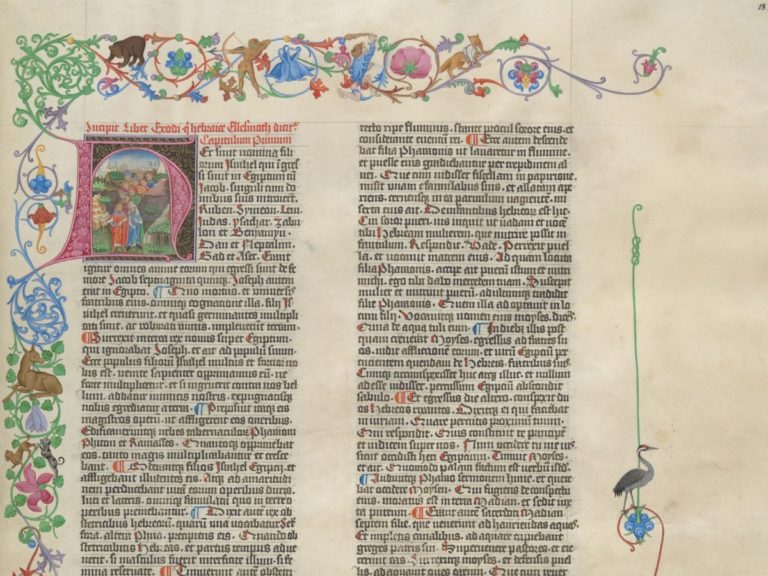 18
Incipit Liber Exodi q̄ hebraice Ellesmoth dicit᷑
Capitulum Primum
Et sunt nomina fili
orum Israhel qui īgres
si sunt in Egiptum cū
Jacob. singuli cum do
mibus suis introierūt.
Ruben. Symeon. Leui
Judas. ysachar. Zabu
lon et Benyamyn.
Dan et Neptalim.
Gad et Aser. Erant
igitur omnes anime eorum qui egressi sunt de fe
more Jacob septuaginta quinq;. Joseph autem
erat in Egipto.
fratribus eius,
cognatione illa. filij Is
rahel creuerunt. et quasi germinantes multipli
cati sunt. ac roborati nimis. impleuerūt terram.
Surrexit interea rex nouus super Egiptum.
qui ignorabat Joseph. et ait ad populū suum.
Ecce populus filiorū Israhel multus et fortior no
bis est. venite sapienter opprimamus eū. ne
forte multiplicetur. et si ingruerit contra nos bel
lum. addatur inimicis nostris. expugnatisq;
nobis egrediatur a terra. Preposuit itaq; eis
magistros operū. ut affligerent eos oneribus.
Edificaueruntq; urbes tabernaculor Pharaoni
Phiton et Ramasses. Quantoq; opprimebat
eos. tanto magis multiplicabantur et cresce
bant. filios Israhel Egiptij. et
affligebant illudentes eis. atq; ad amaritudi
nem perducebant vitā eorum operibus duris.
luti et lateris. omniq; famulatu quo in terre
operibus premebantur. Dixit aūt rex ob
stetricibus hebreorū. quarū una vocabatur Sef
fora. altera Phua. precipiens eis. Quando ob
stetricabitis Hebreas. et partus tempus adue
nerit. si masculus fuerit interficite illum. si fe
mina reseruate. Timuerunt aūt obstetri
recto ripe fluminis. stante procul sorore eius. et
considerante euentū rei. Ecce autem descende
bat filia Pharaonis ut lauaretur in flumine.
et puelle eius gradiebantur per crepidinem al
uei. Que cum vidisset fiscellam in papirione.
misit unam e famulabus suis. et allatam ape
riens. cernensq; in ea paruulum vagientē. mi
serta eius ait. De infantibus hebreorū est hic.
Cui soror pueri. vis inquit ut vadam et vocē
tibi Hebream mulierem. que nutrire possit in
fantulum. Respondit. Vade. Perrexit puel
la. et vocauit matrem eius. Ad quam locuta
filia Pharaonis. accipe ait puerū istum et nutri
michi. ego tibi dabo mercedem tuam. Suscepit
mulier et nutriuit puerū. adultumq; tradidit
filie Pharaonis. Quem illa adoptauit in locū
filij. Vocauitq; nomen eius moyses. dicēs
Quia de aqua tuli eum. In diebus illis post
quam creuerat Moyses. egressus ad fratres su
os. vidit afflictionem eorum. et virū Egiptiū per
cutientem quendam de Hebreis. fratribus suis.
Cumq; circumspexisset huc atq; illuc. et nullum
adesse vidisset. percussum Egiptiū abscondit
sabulo. Et egressus die altero. conspexit du
os Hebreos rixantes. Dixitq; ei qui faciebat
iniuriam. Quare percutis proximū tuum.
Qui respondit. Quis constituit te principē
et iudicem super nos. Num occidere tu me vis
sicut occidisti heri Egiptium. Timuit Moyses.
et ait. Quomodo palam factum est verbū istud.
Audiuitq; Pharao sermonem hunc. et quere
bat occidere Moysen. Qui fugiens de conspectu
eius. moratus est in terra Madian. et sedit iux
ta puteum. Erant autē sacerdoti Madian
septem filie. que venerunt ad hauriendas aquas.
Et impletis canalibus. ad aquare cupiebant
greges patris sui. Superuenere pastores. et eie
cerunt eas. Surrexitq; moyses. et defensis puel
lis. adaquauit oues earum. Que cum reuer